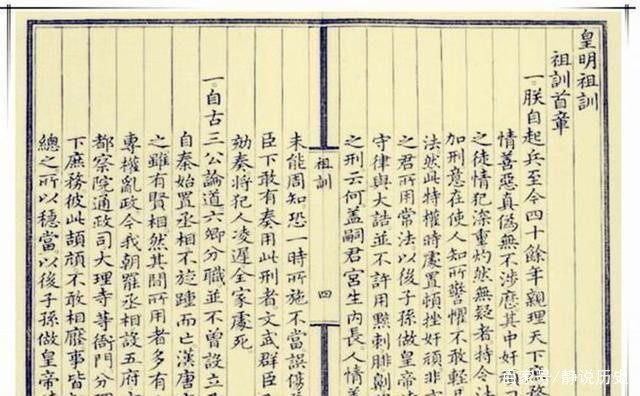 皇明祖訓
祖訓首章
一朕自起兵至今四十餘年親理天下務
情善惡真偽無不涉歷其中奸
之徒情犯深重灼然無疑者特令法
加刑意在使人知所警懼不敢輕
法然此特權時處置頓挫奸頑非
之君所用常法以後子孫做皇帝
守律與大誥並不許用黥刺腓劓
之刑云何蓋嗣君宮生內長人情善
祖訓
四
未能周知恐一時所施不當誤傷
臣下敢有奏用此刑者文武群臣
劾奏將犯人凌遲全家處死
一自古三公論道六卿分職並不曾設立
自秦始置丞相不旋踵而亡漢唐
之雖有賢相然其間所用者多有
專權亂政今我朝罷丞相設五府
都察院通政司大理寺等衙門分理
下庶務彼此頡頏不敢相壓事皆
總之所以穩當以後子孫做皇帝時
百家号/静说历史